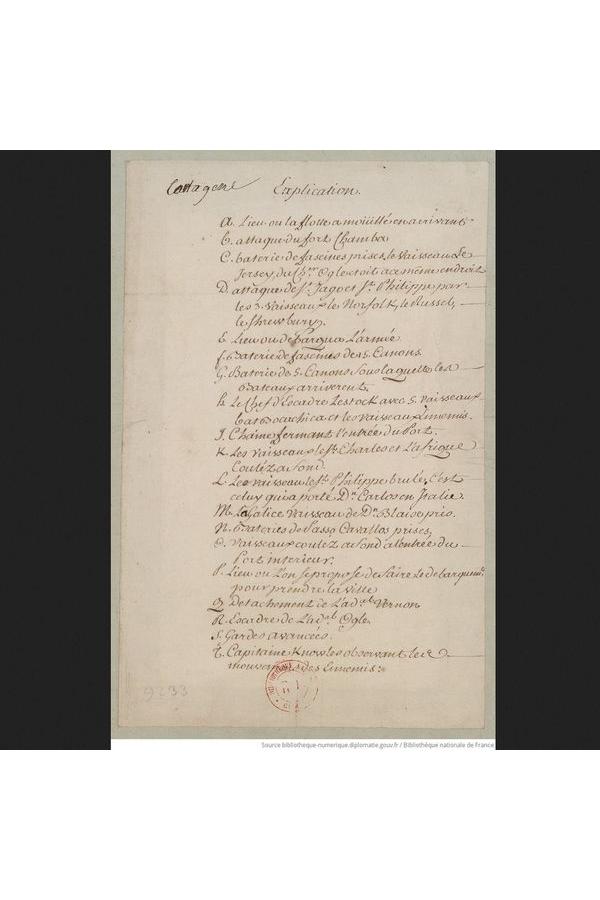 Cartagene
Explication.
A. Lieu ou la flotte a moüillé en arrivant
B. attaque du fort Chamba
C. baterie de fascines prises, le Vaisseau Le
Jersey, du Ch.er Ogle etoit au même endroit
D. attaque de St. Jago et St. Philippe par
les 3. Vaisseaux le Norfolk, le Russel,
le Shrewbury.
E. Lieu ou débarqua L'armée
f. Baterie de fascines de 15. Canons
G. Baterie de 5. Canons sous laquelle les
Bateaux arriverent.
h. Le Chef d'Escadre Lestock avec 5. Vaisseaux
bat Bocachica et les Vaisseaux Ennemis.
J. Chaine fermant l'entrée du Port.
K. Les Vaisseaux le St. Charles et L'afrique
Coulez a fond.
L. Le Vaisseau le St. Philippe brulé, C'est
celuy qui a porté Dn. Carlos en Italie.
M. La Galice Vaisseau de Dn. Blaise pris.
N. Bateries de Passo Cavallos prises.
O. Vaisseaux coulez a fond a l'entrée du
Port interieur.
P. Lieu ou L'on se propose de faire Le debarquemt.
pour prendre la Ville
Q Detachement de L'ad.al Vernon
R. Escadre de L'ad.al Ogle.
S. Gardes avancées.
T. Capitaine Knowles observant les
mouvemens des Ennemis.
9233
Source bibliotheque-numerique.diplomatie.gouv.fr / Bibliothèque nationale de France